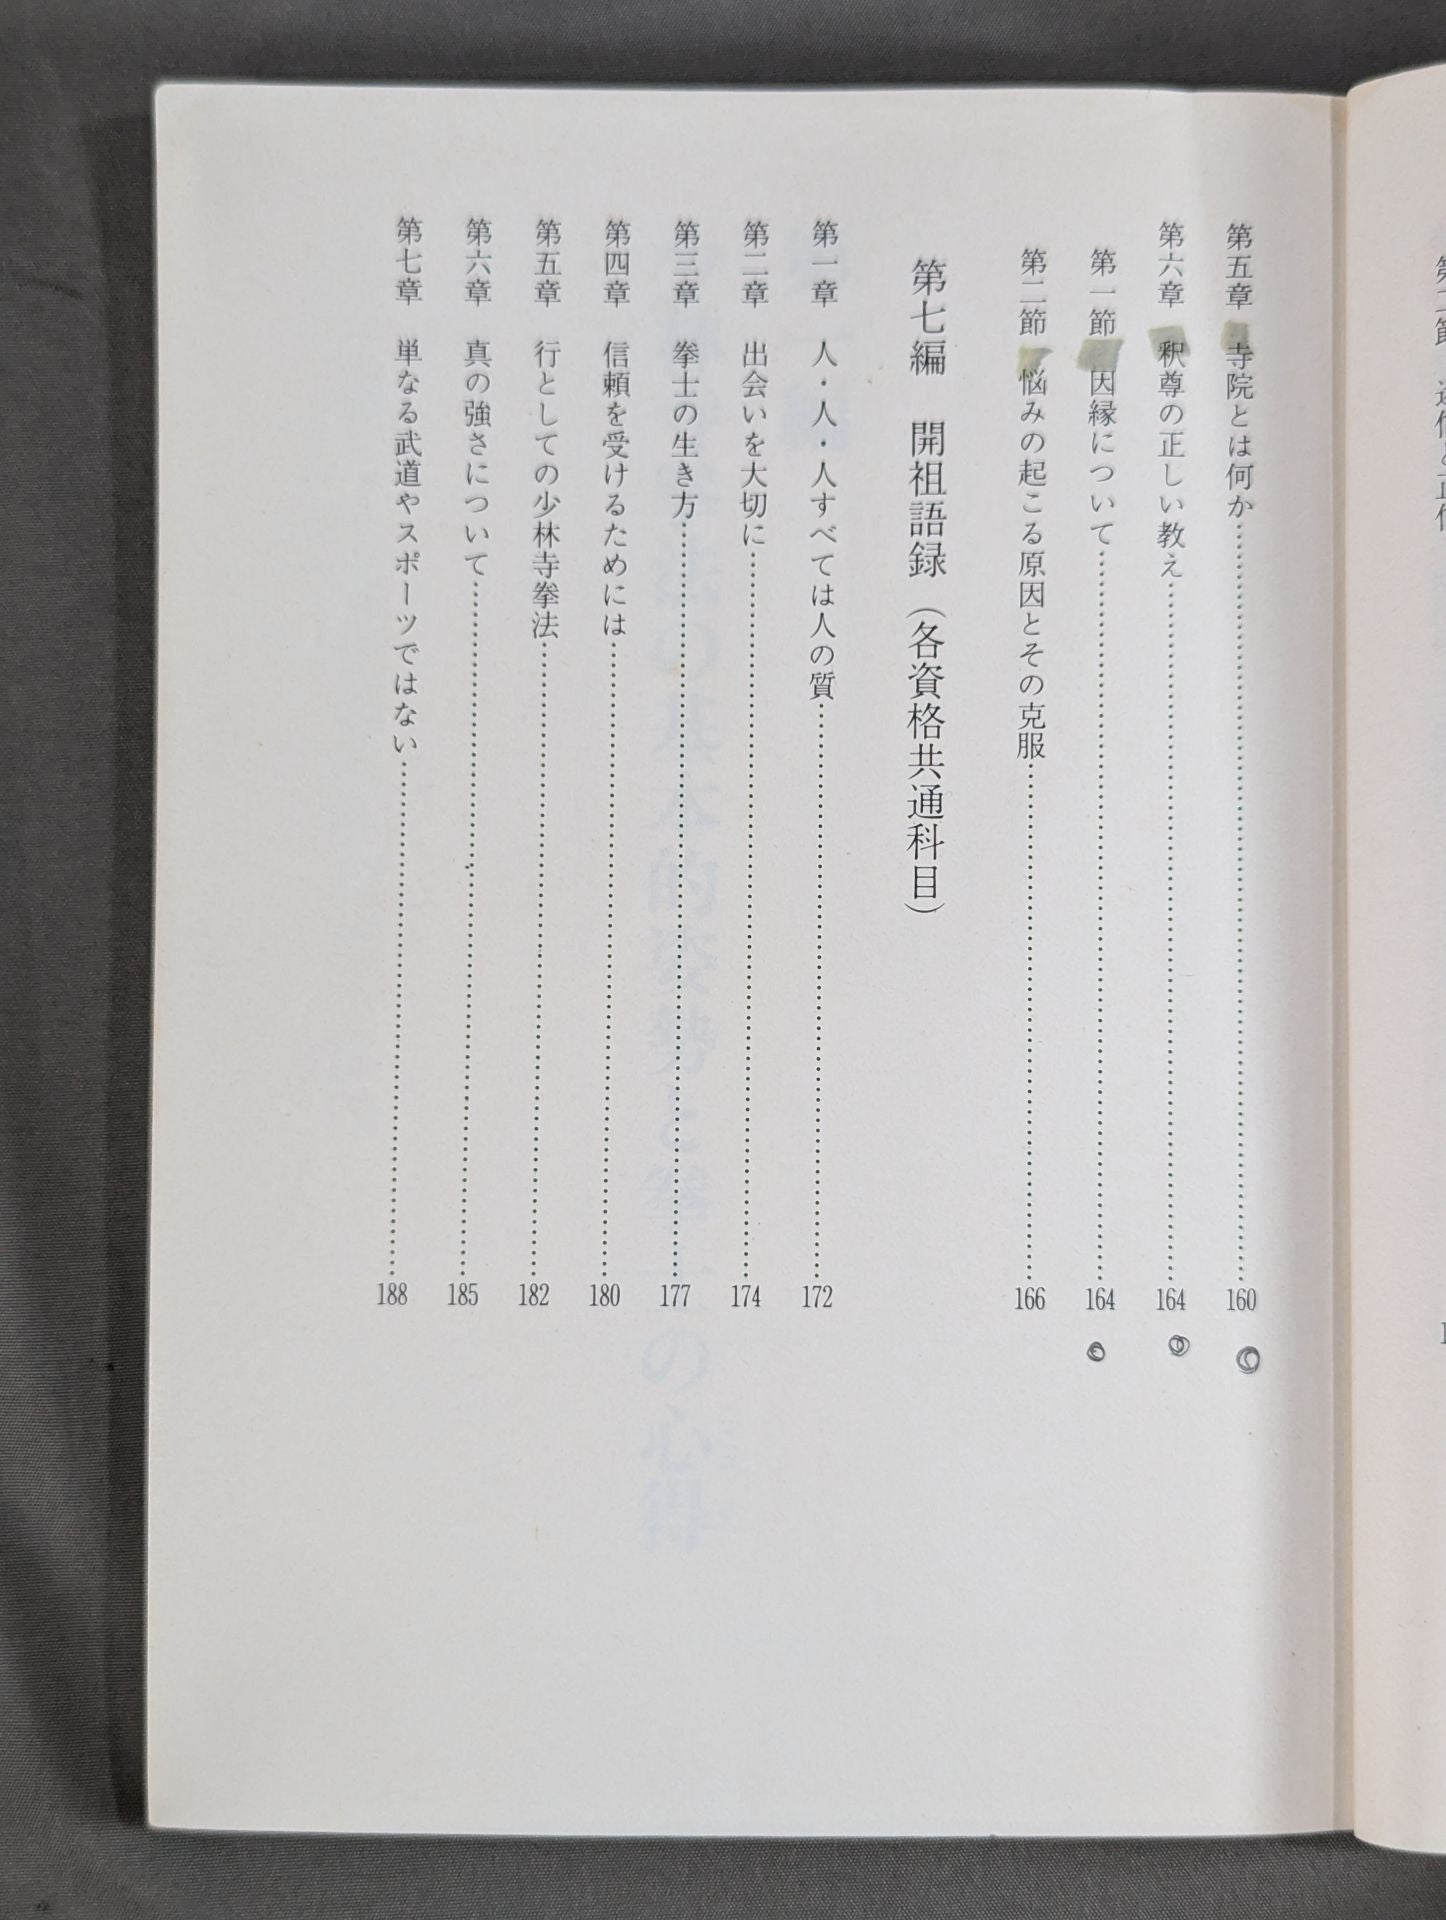 第五章　寺院とは何か……………………160
第六章　釈尊の正しい教え……………………164
第一節　因縁について……………………164
第二節　悩みの起こる原因とその克服……………………166
第七編　開祖語録（各資格共通科目）
第一章　人・人・人すべては人の質……………………172
第二章　出会いを大切に……………………174
第三章　拳士の生き方……………………177
第四章　信頼を受けるためには……………………180
第五章　行としての少林寺拳法……………………182
第六章　真の強さについて……………………185
第七章　単なる武道やスポーツではない……………………188